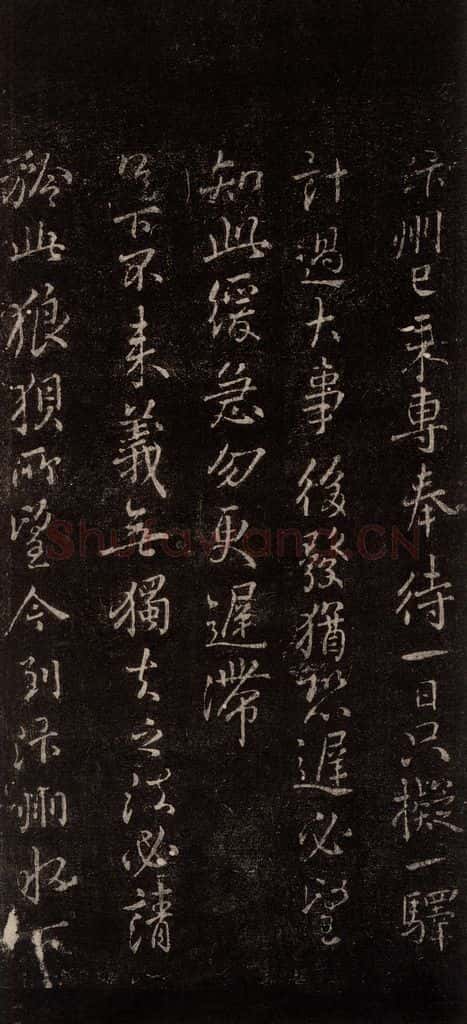 汴州已來專奉待一日只擬一驛
計過大事後發猶恐遲必望
知此緩急勿更遲滯
足下不來義無獨去之法必請
於此狼狽所望今到汴州水下
Shufawang.CN